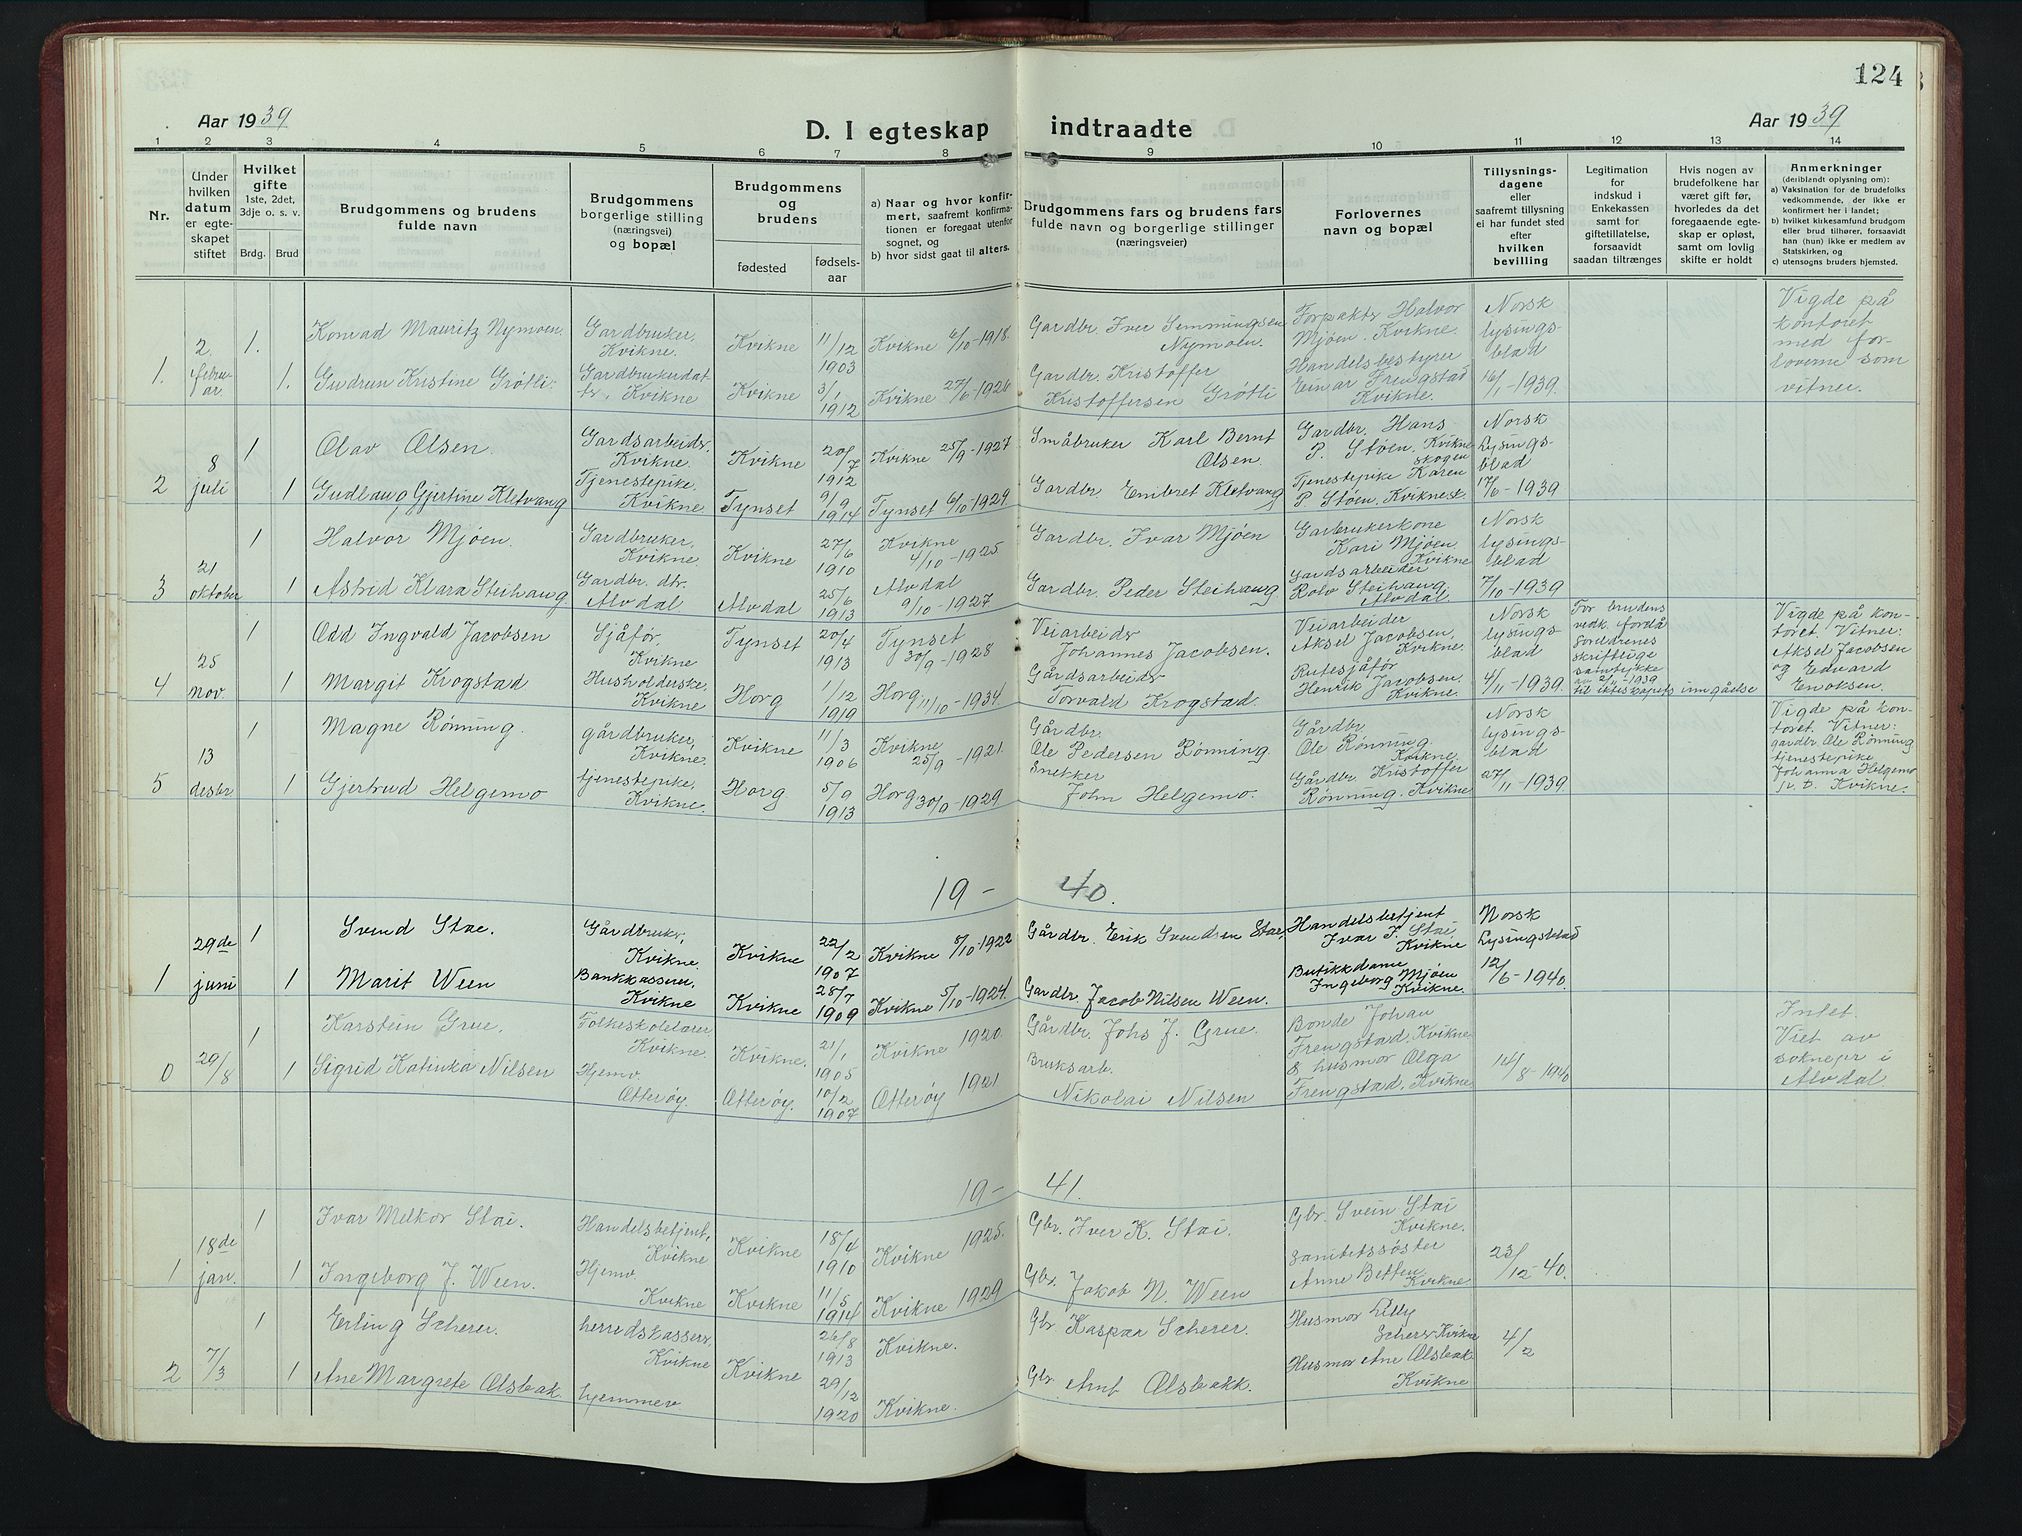 124
Aar 1939
D. I egteskap indtraadte
Aar 1939
1 2 3 4 5 6 7 8 9 10 11 12 13 14
Nr.
Under hvilken datum er egteskapet stiftet
Hvilket gifte 1ste, 2det, 3dje o. s. v.
Brdg. Brud
Brudgommens og brudens fulde navn
Brudgommens borgerlige stilling (næringsvei) og bopæl
Brudgommens og brudens
fødested
fødselsaar
a) Naar og hvor konfirmert, saafremt konfirmationen er foregaat utenfor sognet, og
b) hvor sidst gaat til alters.
Brudgommens fars og brudens fars fulde navn og borgerlige stillinger (næringsveier)
Forlovernes navn og bopæl
Tillysningsdagene eller saafremt tillysning ei har fundet sted efter hvilken bevilling
Legitimation for indskud i Enkekassen samt for giftetillatelse, forsaavidt saadan tiltrænges
Hvis nogen av brudefolkene har været gift før, hvorledes da det foregaaende egteskap er opløst, samt om lovlig skifte er holdt
Anmerkninger
(deriblandt oplysning om):
a) Vaksination for de brudefolks vedkommende, der ikke er konfirmert her i landet;
b) hvilket kirkesamfund brudgom eller brud tilhører, forsaavidt han (hun) ikke er medlem av Statskirken, og
c) utensogns bruders hjemsted.
1. 2. februar.
1. Konrad Mauritz Nymoen. Gardbruker, Kvikne. Kvikne 11/12 1903 Kvikne 6/10-1918. Gardbr. Iver Simmingsen Nymoen. Forpaktr Halvor Mjøen. Kvikne.
1. Gudrun Kristine Grøtli. Gardbrukerdattr, Kvikne Kvikne 3/1 1912 Kvikne 27/6-1926 Gardbr. Kristoffer Kristoffersen Grøtli Handelsbestyrer Einar Frengstad Kvikne.
Norsk lysingsblad 16/1-1939.
Vigde på kontoret med forloverne som vitner.
2 8 juli
1 Olav Olsen. Gardsarbeidr. Kvikne. Kvikne 20/7 1912 Kvikne 25/9-1927 Småbruker Karl Bernt Olsen. Gardbr. Hans P. Støen, Kvikneskogen
1 Gudlaug Gjertine Kletvang Tjenestepike. Kvikne. Tynset 9/9 1914 Tynset 6/10-1929 Gardbr. Embret Kletvang Tjenestepike Karen P. Støen, Kviknesk.
Norsk Lysingsblad 17/6-1939
3 21 oktober
1 Halvor Mjøen. Gardbruker, Kvikne. Kvikne 27/6 1910 Kvikne 4/10-1925 Gardbr. Ivar Mjøen Garbrukerkone Kari Mjøen Kvikne
1 Astrid Klara Steihaug Gardbr. dtr. Alvdal Alvdal 25/6 1913 Alvdal 9/10-1927 Gardbr. Peder Steihaug Gardsarbeider Rolv Steihaug. Alvdal.
Norsk lysingsblad 7/10-1939
4 25 nov
1 Odd Ingvald Jacobsen Sjåfør Kvikne Tynset 20/4 1913 Tynset 30/9-1928 Veiarbeidr Johannes Jacobsen. Veiarbeider Aksel Jacobsen, Kvikne.
1 Margit Krogstad Husholderske. Kvikne. Horg 1/12 1919 Horg 11/10-1934. Gårdsarbeidr Torvald Krogstad. Rutesjåfør Henrik Jacobsen. Kvikne.
Norsk lysingsblad 4/11-1939.
For brudens vedk. forelå foreldrenes skriftlige samtykke av 2/11-1939 til ekteskapets inngåelse
Vigde på kontoret. Vitner: Aksel Jacobsen og Edvard Enoksen.
5 13 desbr
1 Magne Rønning. gårdbruker, Kvikne. Kvikne 11/3 1906 Kvikne 25/9-1921. Gårdbr. Ole Pedersen Rønning. Gårdbr. Ole Rønning. Kvikne.
1 Gjertrud Helgemo tjenestepike, Kvikne. Horg 5/9 1913 Horg 30/9-1929 Snekker John Helgemo. Gårdbr Kristoffer Rønning. Kvikne
Norsk lysingsblad 27/11-1939
Vigde på kontoret. Vitner: gårdbr. Ole Rønning tjenestepike Johanna Helgemo p. t. Kvikne.
19-40.
1 29de juni
1 Svend Stae. Gårdbrukr, Kvikne. Kvikne 22/2 1907 Kvikne 8/10-1922 Gårdbr. Erik Svendsen Stae, Handelsbetjent Ivar J. Stai, Kvikne
1 MaritWeen Bankkasserer, Kvikne Kvikne 28/7 1909 Kvikne 5/10-1924. Gardbr. Jacob Nilsen Ween. Butikkdame Ingeborg Mjøen Kvikne.
Norsk Lysingsblad 12/6-1940.
0 29/8
1 Karstein Grue. Folkeskolelærer Kvikne. Kvikne. 21/1 1905 Kvikne 1920. Gårdbr. Johs J. Grue. Bonde Johan Frengstad, Kvikne
1 Sigrid Katinka Nilsen Hjemv. Otterøy Otterøy. 10/2 1907 Otterøy 1921 Bruksarb. Nikolai Nilsen & husmor Olga Frengstad, Kvikne
14/8-1940
Intet. Viet av soknepr i Alvdal.
19-41.
1 18de jan.
1 Ivar Melkor Stai. Handelsbetjent, Kvikne Kvikne 18/4 1910 Kvikne 1925. Gbr. Iver K. Stai. Gbr. Svein Stai Kvikne.
1 Ingeborg J. Ween. Hjemv. Kvikne Kvikne 11/5 1914 Kvikne 1929 Gbr. Jakob N. Ween Sanitetssøster Anne Betten Kvikne
23/12-40.
2 7/3
1 Erling Scherer. herredskasserr, Kvikne Kvikne 26/8 1913 Kvikne. Gbr Kaspar Scherer. Husmor Lilly Scherer Kvikne
1 Ane Margrete Olsbak. hjemmev 29/12 1920 Kvikne. Gbr. Arnt Olsbakk. Husmo Ane Olsbak Kvikne
4/2